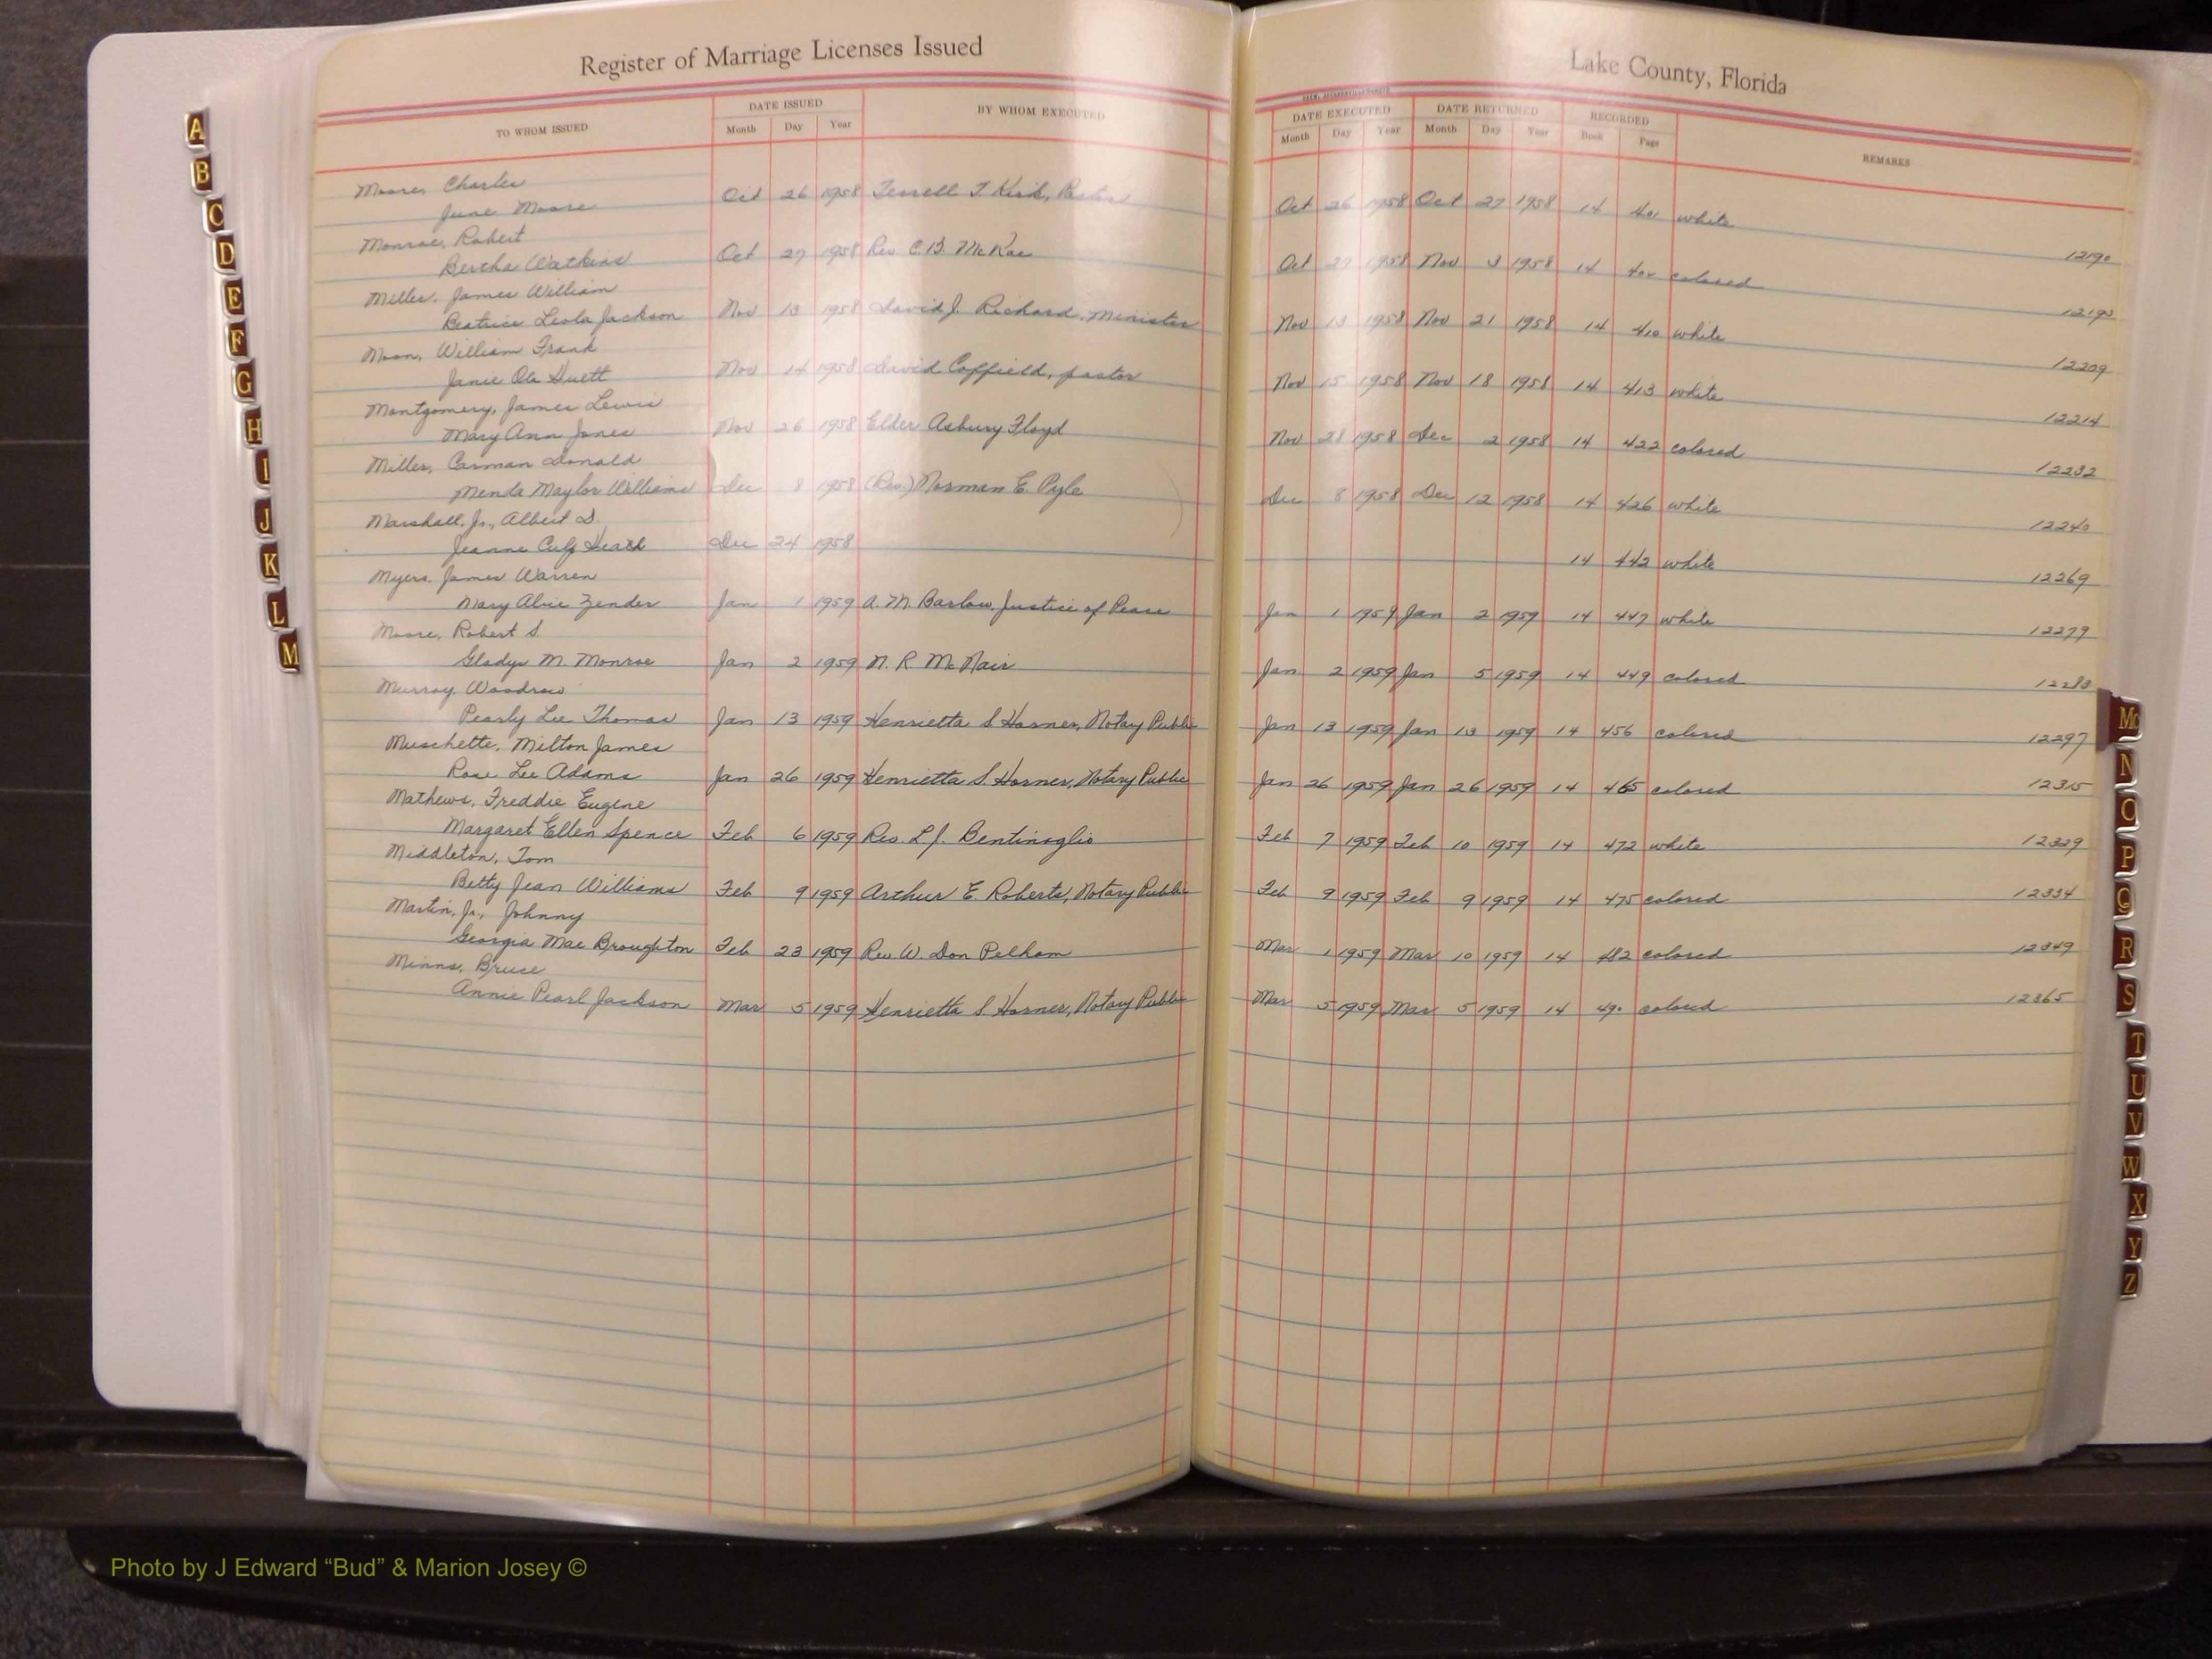 Register of Marriage Licenses Issued
Lake County, Florida
TO WHOM ISSUED DATE ISSUED BY WHOM EXECUTED DATE EXECUTED DATE RETURNED RECORDED REMARKS
Month Day Year Month Day Year Month Day Year Book Page
Moore, Charles
June Moore Oct 26 1958 Terrell T. Kirk, Pastor Oct 26 1958 Oct 27 1958 14 401 white 12190
Monroe, Robert
Bertha Watkins Oct 27 1958 Rev. C.B. McRae Oct 27 1958 Nov 3 1958 14 402 colored
Miller, James William
Beatrice Leola Jackson Nov 13 1958 David J. Richard, Minister Nov 13 1958 Nov 21 1958 14 410 white 12209
Moon, William Frank
Janie Ola Duett Nov 14 1958 David Coffield, pastor Nov 15 1958 Nov 18 1958 14 413 white 12214
Montgomery, James Lewis
Mary Ann Jones Nov 26 1958 Elder Asbury Floyd Nov 28 1958 Dec 2 1958 14 422 colored 12232
Miller, Carman Donald
Menda Maylor Williams Dec 8 1958 (Rev.) Norman E. Pyle Dec 8 1958 Dec 12 1958 14 426 white 12240
Marshall, Jr., Albert D.
Jeanne Culp Dec 24 1958 14 442 white 12269
Myers, James Warren
Mary Alice Zender Jan 1 1959 A. M. Barlow, Justice of Peace Jan 1 1959 Jan 2 1959 14 447 white 12279
Moore, Robert S.
Gladys M. Monroe Jan 2 1959 N. R. McNair Jan 2 1959 Jan 5 1959 14 449 colored 12283
Murray, Woodrow
Pearly Lee Thomas Jan 13 1959 Henrietta S Horner, Notary Public Jan 13 1959 Jan 13 1959 14 456 colored 12297
Muschette, Milton James
Rose Lee Adams Jan 26 1959 Henrietta S. Horner, Notary Public Jan 26 1959 Jan 26 1959 14 465 colored 12315
Mathews, Freddie Eugene
Margaret Ellen Spence Feb 6 1959 Rev. L. J. Bentivoglio Feb 7 1959 Feb 10 1959 14 472 white 12329
Middleton, Tom
Betty Jean Williams Feb 9 1959 Arthur E. Roberts, Notary Public Feb 9 1959 Feb 9 1959 14 475 colored 12334
Martin, Jr., Johnny
Georgia Mae Broughton Feb 23 1959 Rev W. Don Pelham Mar 1 1959 Mar 10 1959 14 482 colored 12349
Minns, Bruce
Annie Pearl Jackson Mar 5 1959 Henrietta S Horner, Notary Public Mar 5 1959 Mar 5 1959 14 490 colored 12365
A
B
C
D
E
F
G
H
I
J
K
L
M
Mc
N
O
P
Q
R
S
T
U
V
W
X
Y
Z
Photo by J Edward “Bud” & Marion Josey ©